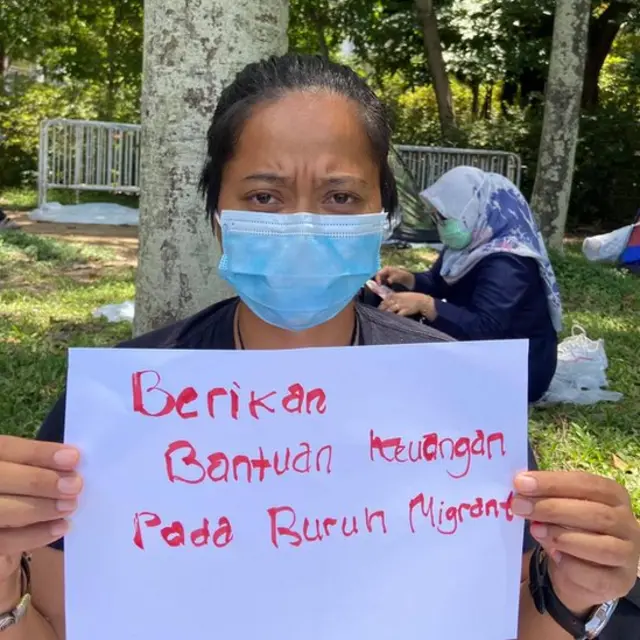 Berikan
Bantuan Keuangan
Pada Buruh Migrant